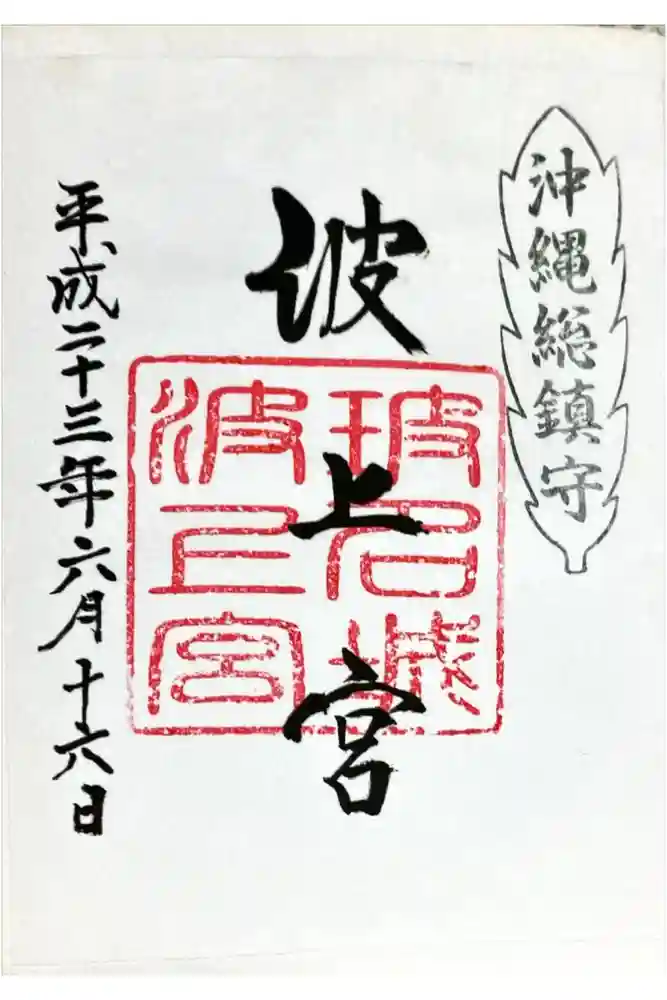 沖縄総鎮守
波上宮
玻名城
波上宮
平成二十三年六月十六日